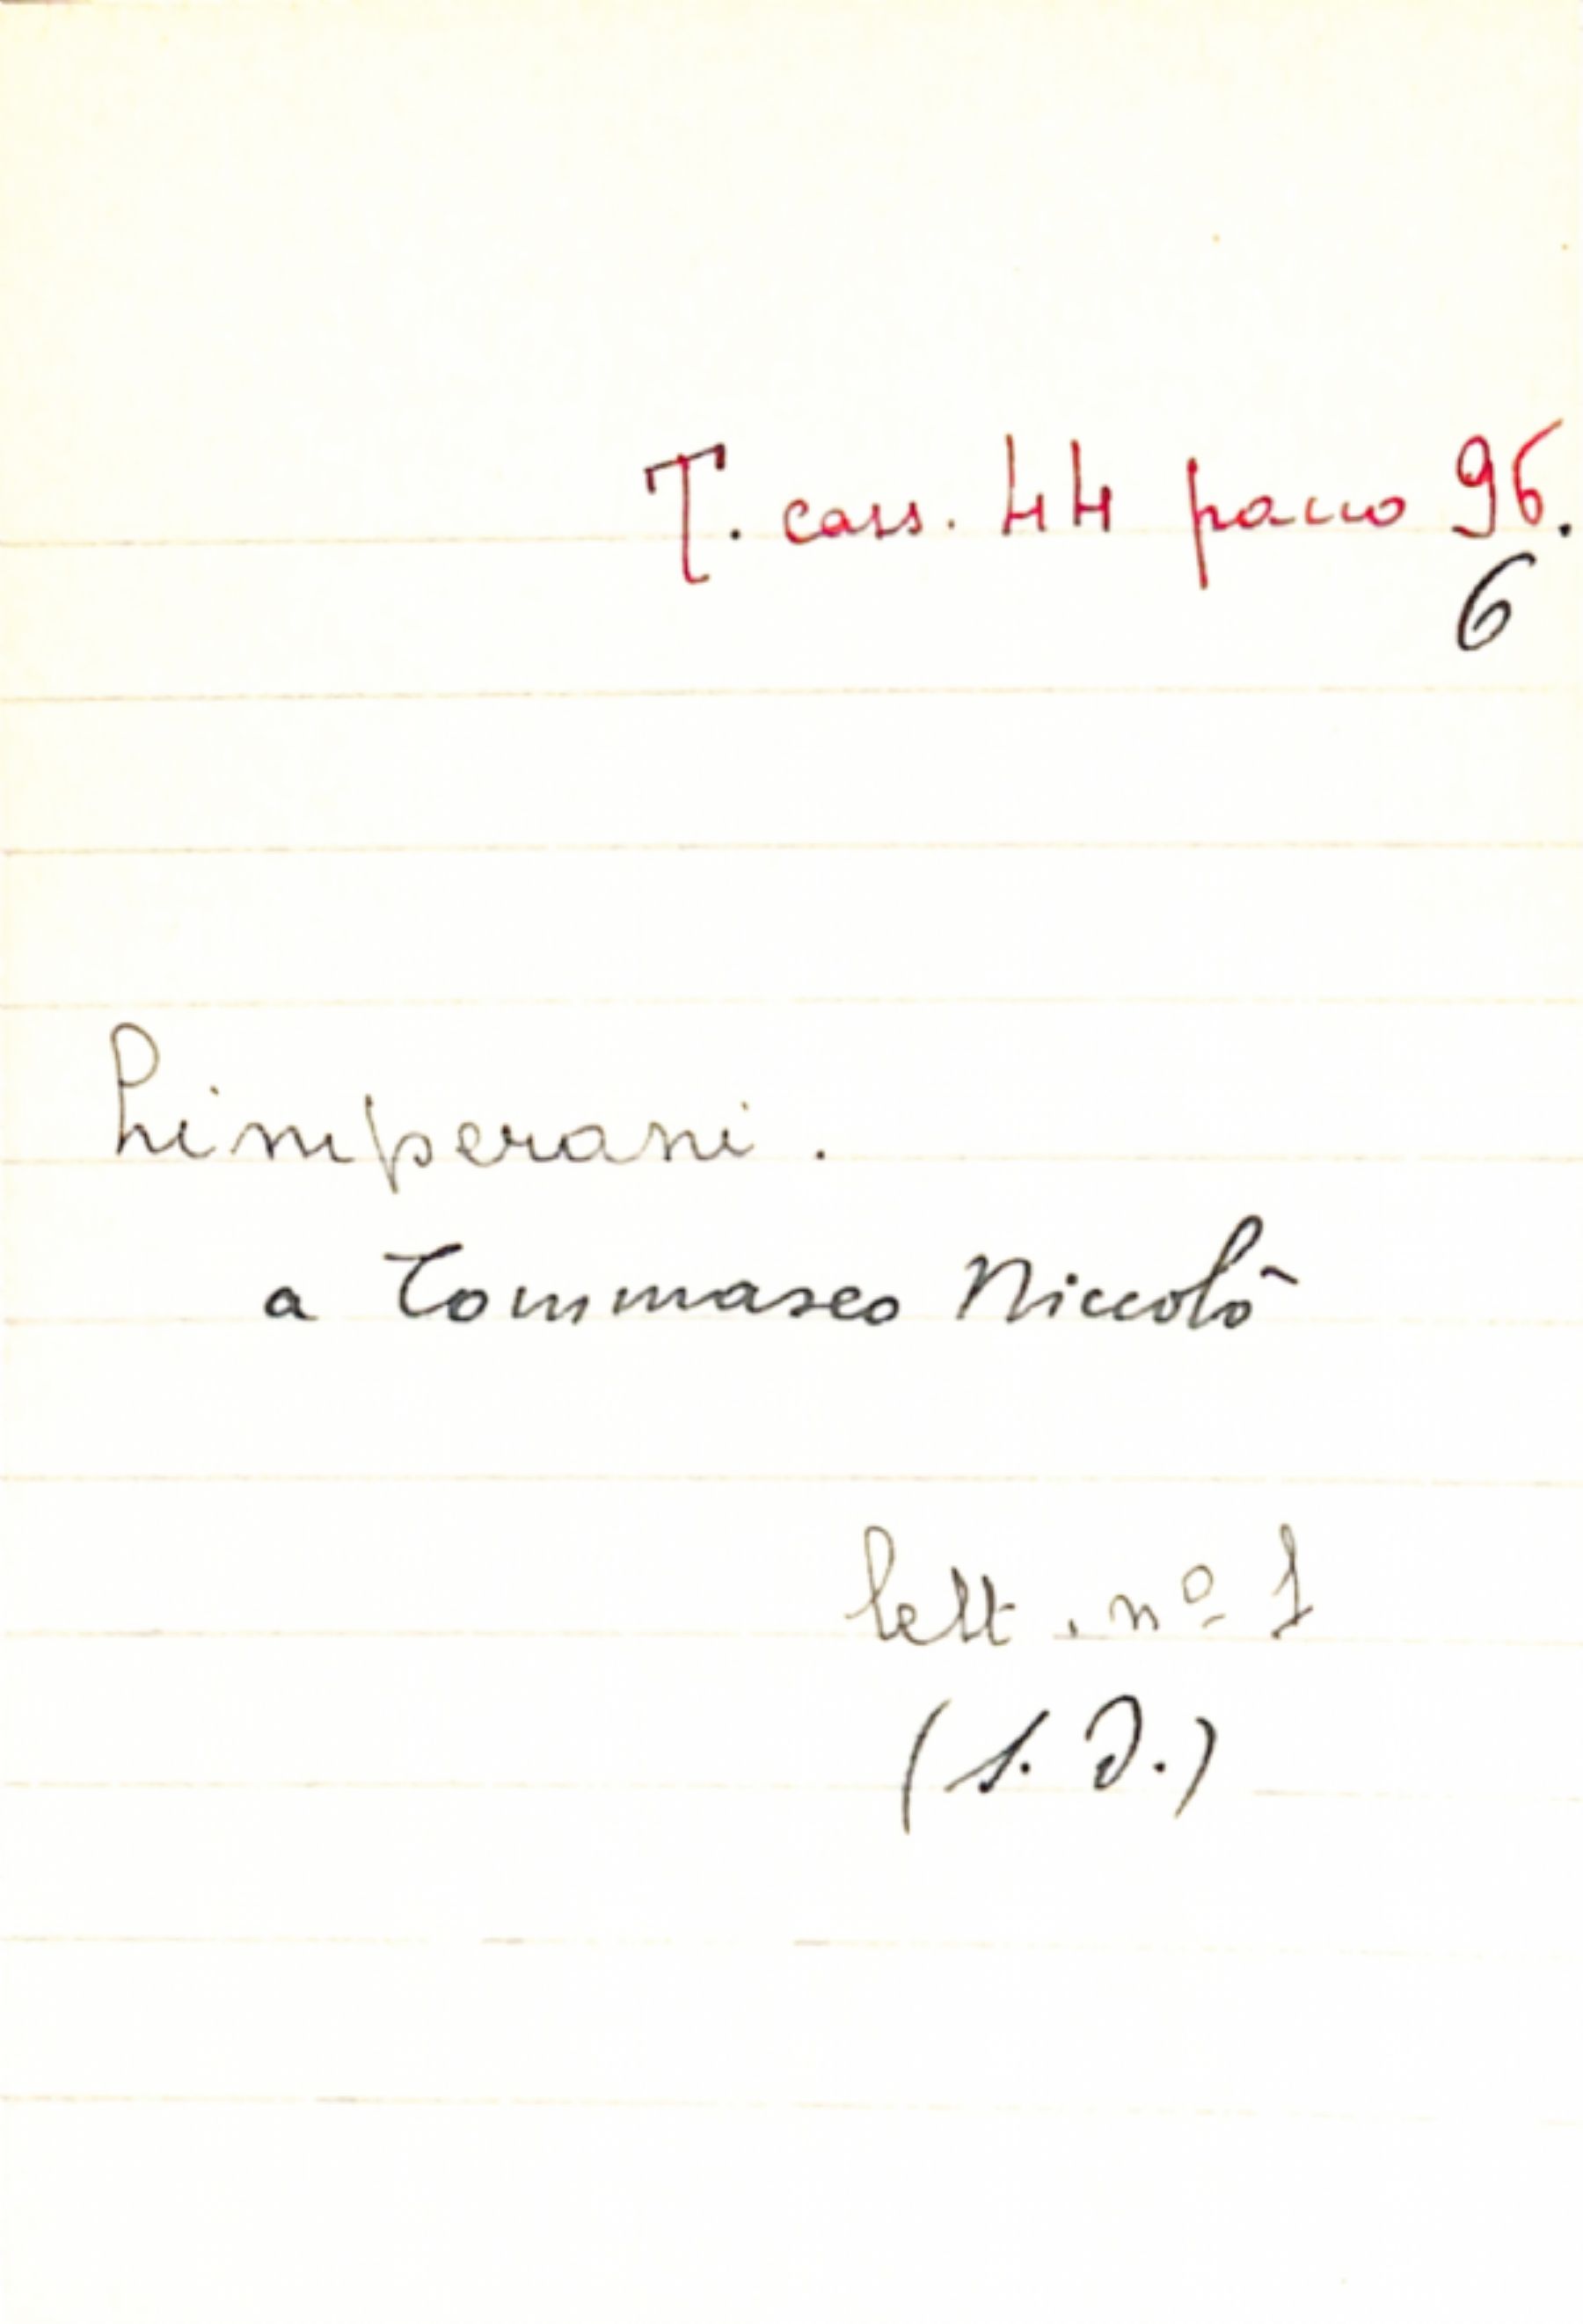 T. cass. 44 pacco 96.
6
Limperani.
a Tommaseo Niccolò
lett. nº 1
(s. d.)